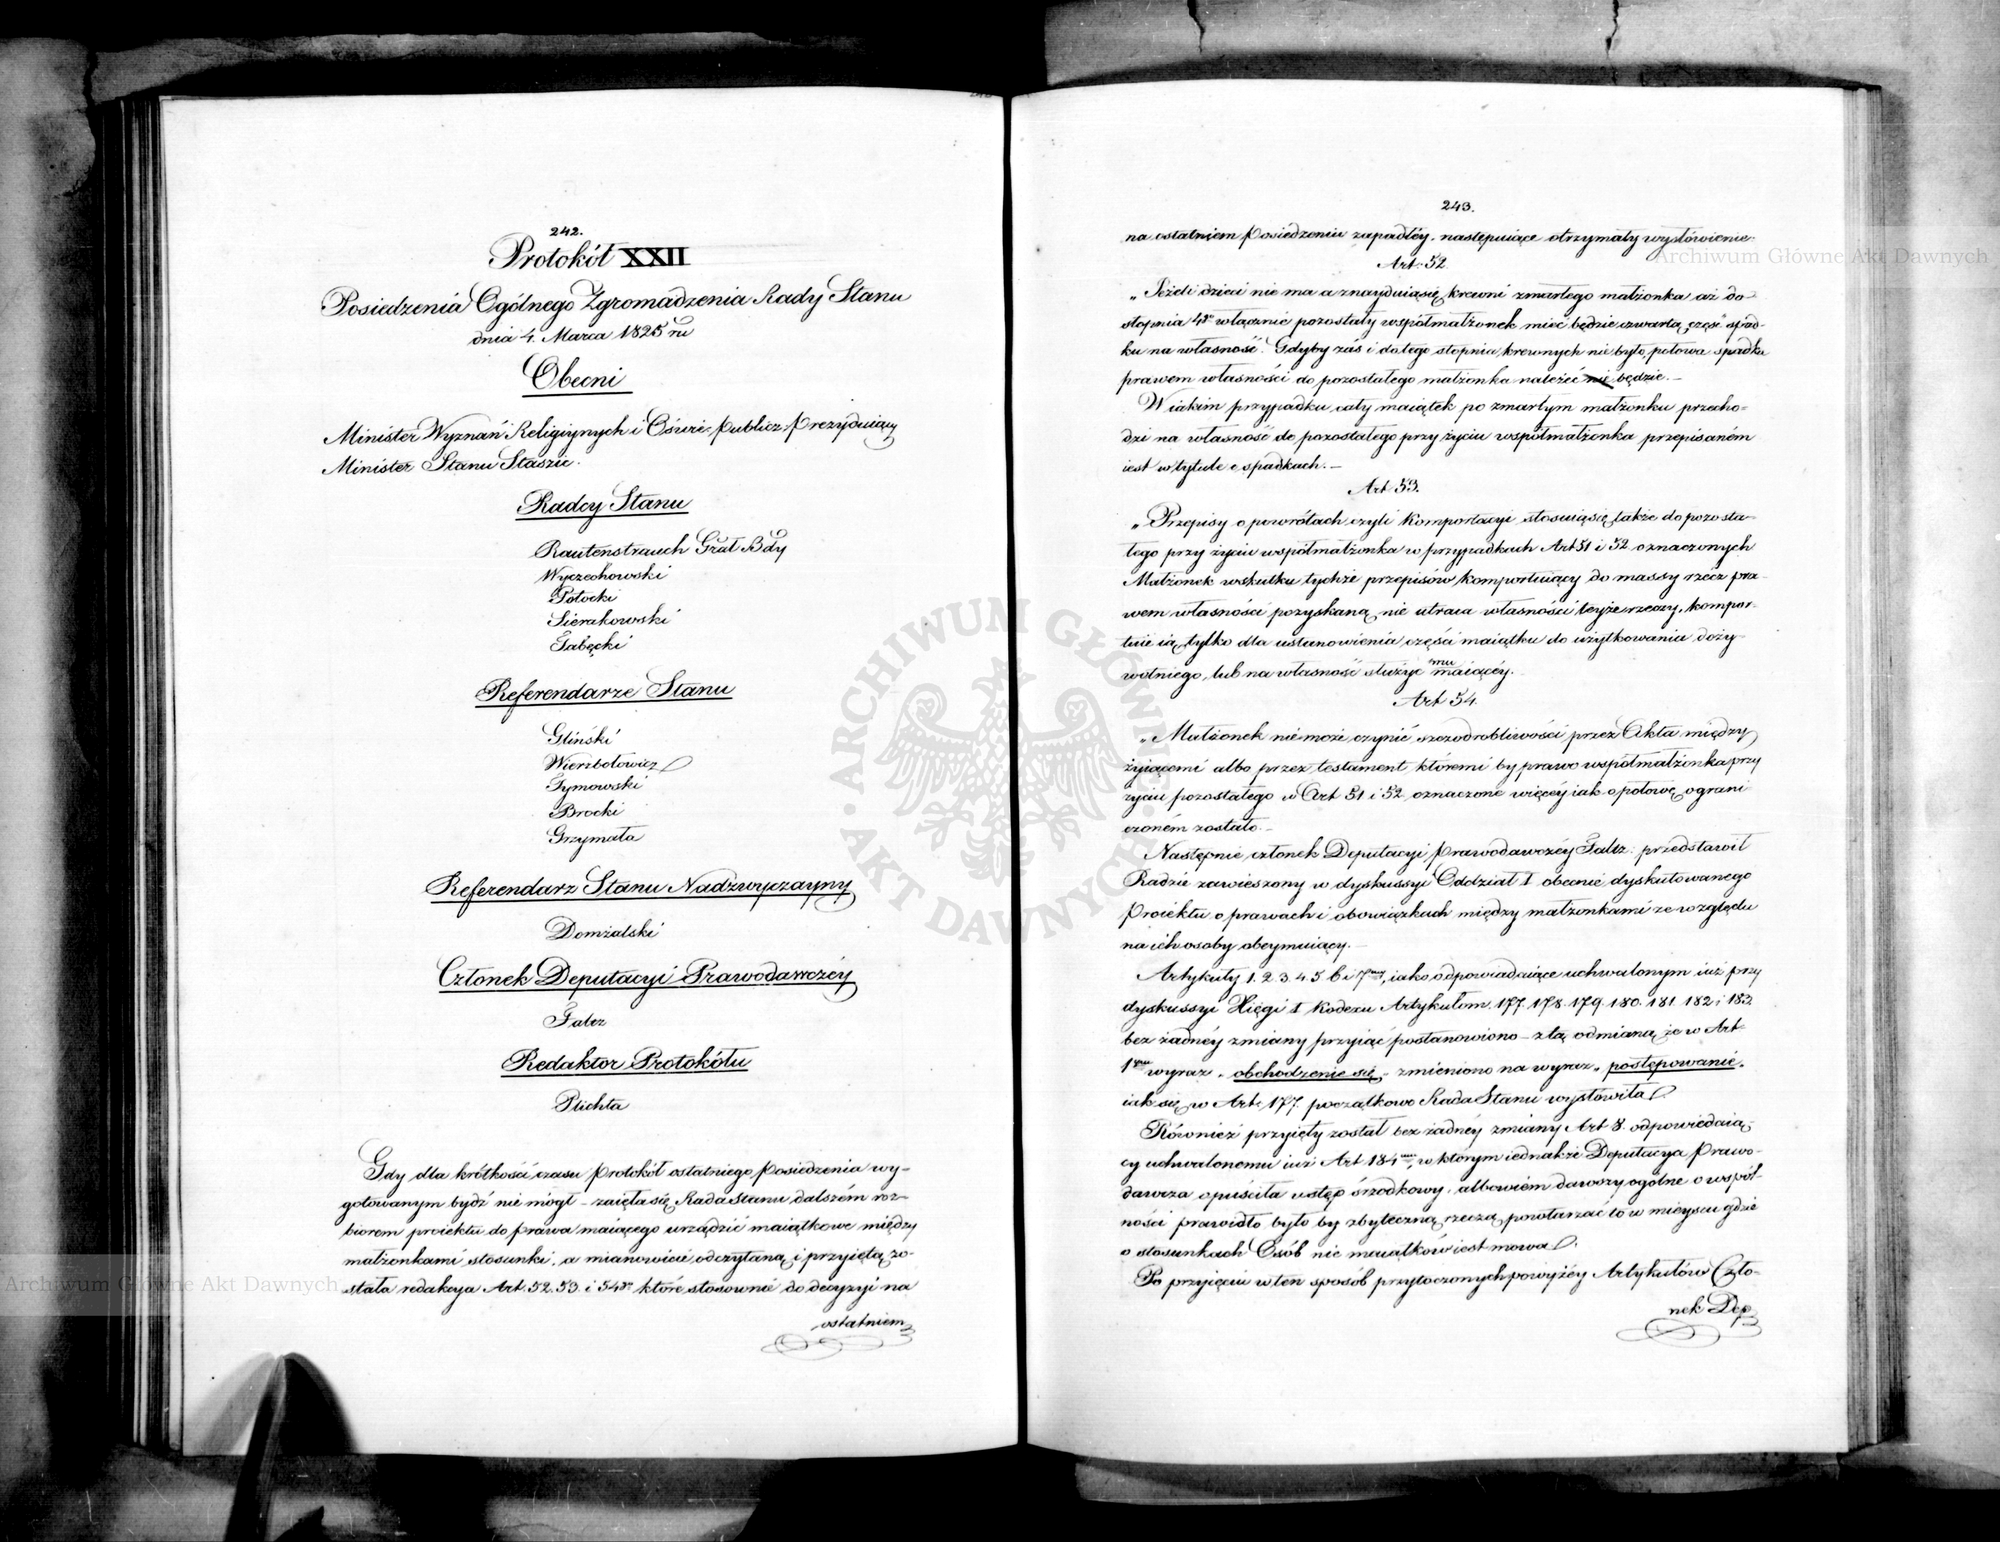 242.
Protokół XXII
Posiedzenia Ogólnego Zgromadzenia Rady Stanu
dnia 4. Marca 1825 ru
Obecni
Minister Wyznań Religiynych i Oświec. Publicz. Prezyduiący
Minister Stanu Staszic.
Radcy Stanu
Rautenstrauch Grał Bdy
Wyczechowski
Potocki
Sierakowski
Łabęcki
Referendarze Stanu
Gliński
Wierzbołowicz
Tymowski
Brocki
Grzymała
Referendarz Stanu Nadzwyczayny
Domżalski
Członek Deputacyi Prawodawczéy
Faltz
Redaktor Protokółu
Plichta
Gdy dla krótkości czasu Protokół ostatniego Posiedzenia wy-
gotowanym bydź nie mógł – zaięła się Rada Stanu dalszém roz-
biorem proiektu do prawa maiącego urządzić maiątkowe między
małżonkami stosunki, a mianowicie odczytaną i przyiętą zo-
stała redakcya Art. 52. 53. i 54go które stosownie do decyzyi na
ostatniem
243.
na ostatniem Posiedzeniu zapadłéy, następuiące otrzymały wysłówienie.
Art. 52.
„Jeżeli dzieci nie ma a znayduią się krewni zmarłego małżonka aż do
stopnia 4go włącznie pozostały współmałżonek mieć będzie czwartą część spad-
ku na własność. Gdyby zaś i do tego stopnia krewnych nie było, połowa spadku
prawem własności do pozostałego małżonka należéć nie będzie. –
W iakim przypadku cały maiątek po zmarłym małżonku przecho-
dzi na własność do pozostałego przy życiu współmałżonka przepisaném
iest w tytule o spadkach. –
Art. 53.
„Przepisy o powrótach czyli Komportacyi stosuią się także do pozosta-
łego przy życiu współmałżonka w przypadkach Art 51 i 52 oznaczonych
Małżonek wskutku tychże przepisów komportuiący do massy rzecz pra-
wem własności pozyskaną nie utraca własności teyże rzeczy, kompor-
tuie ią tylko dla ustanowienia części maiątku do użytkowania doży-
wotniego, lub na własność służyć mu maiącéy.
Art 54.
„Małżonek nie może czynić szczodrobliwości przez Akta między
żyiącemi albo przez testament któremi by prawo współmałżonka przy
życiu pozostałego w Art 51 i 52 oznaczone więcéy iak o połowę ograni
czoném zostało. –
Następnie członek Deputacyi Prawodawczéy Faltz: przedstawił
Radzie zawieszony w dyskussyi Oddział I obecnie dyskutowanego
Proiektu o prawach i obowiązkach między małżonkami ze względu
na ich osoby obeymuiący. –
Artykuły 1. 2. 3. 4. 5. 6 i 7my, iako odpowiadaiące uchwalonym iuż przy
dyskussyi Xięgi I Kodexu Artykułom. 177. 178. 179. 180. 181. 182 i 183.
bez żadnéy zmiany przyiąć postanowiono – z tą odmianą, że w Art
1ym wyraz „obchodzenie się„ zmieniono na wyraz „postępowanie„
iak się w Art. 177. początkowo Rada Stanu wysłowiła.
Również przyięty został bez żadnéy zmiany Art 8. odpowiedaią-
cy uchwalonemu iuż Art 184mu, w którym iednakże Deputacya Prawo-
dawcza opuściła ustęp środkowy, albowiem dawszy ogólne o wspól-
ności prawidło było by zbyteczną rzeczą powtarzać to w mieyscu gdzie
o stosunkach Osób nie maiątków iest mowa.
Po przyięciu w ten sposób przytoczonych powyżéy Artykułów Czło-
nek Dep
Archiwum Główne Akt Dawnych
Archiwum Główne Akt Dawnych
ARCHIWUM GŁÓWNE AKT DAWNYCH